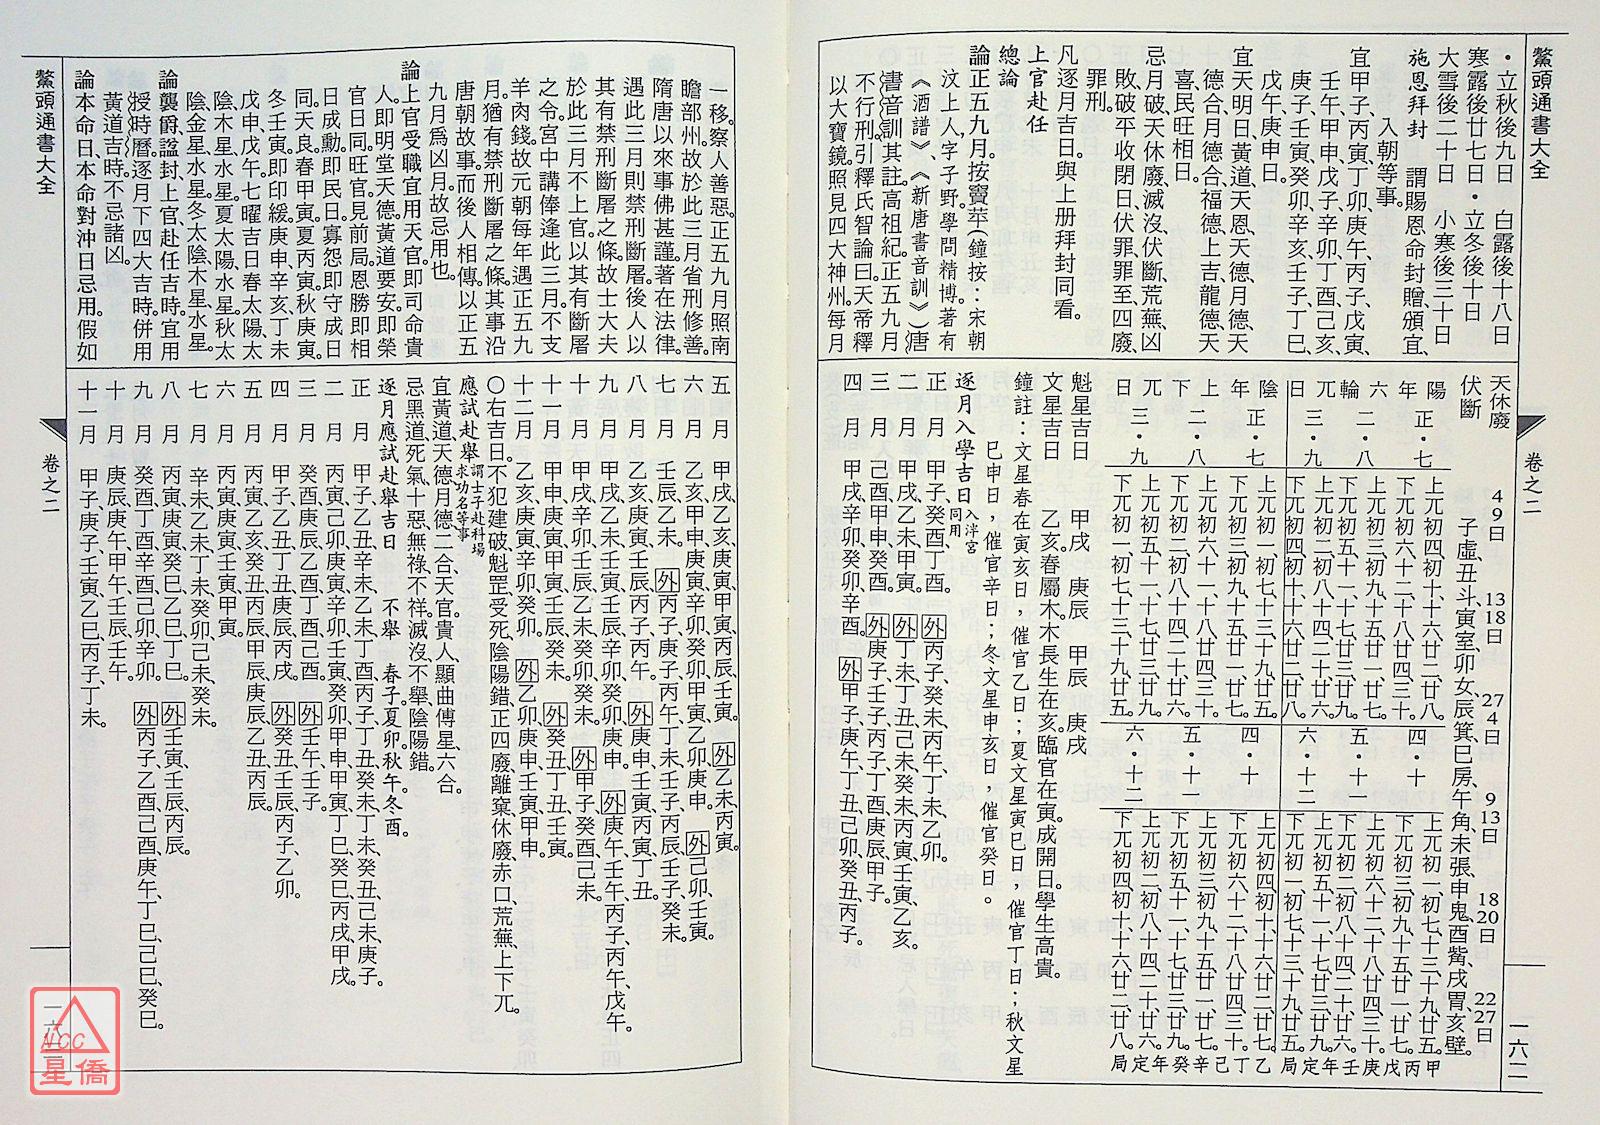 鰲頭通書大全
卷之二
一六二
・立秋後九日　白露後十八日
寒露後廿七日・立冬後十日
大雪後二十日　小寒後三十日
施恩拜封　謂賜恩命封贈頒宜、
入朝等事。
宜甲子、丙寅、丁卯、庚午、丙子、戊寅、
壬午、甲申、戊子、辛卯、丁酉、己亥、
庚子、壬寅、癸卯、辛亥、壬子、丁巳、
戊午、庚申日。
宜天明日、黃道、天恩、天德、月德、天
德合、月德合、福德、上吉、龍德、天
喜、民旺、相日。
忌月破、天休廢、滅沒、伏斷、荒蕪、凶
敗、破平收閉日、伏罪、罪至、四廢、
罪刑。
凡逐月吉日與上册拜封同看。
上官赴任
總論
論正五九月。按竇苹（鐘按：宋朝
汶上人，字子野，學問精博。著有
《酒譜》、《新唐書音訓》）唐
書音訓，其註高祖紀。正五九月
不行刑。引釋氏智論曰。天帝釋
以大寶鏡。照見四大神州。每月
天休廢　4 9日　13 18日　27 4日　9 13日　18 20日　22 27日
伏斷　子虛、丑斗、寅室、卯女、辰箕、巳房、午角、未張、申鬼、酉觜、戌胃、亥壁。
陽年六輪兀日
正・七　上兀初四、初十、十六、廿二、廿八。
下兀初六、十二、十八、廿四、三十。
二・八　上兀初三、初九、十五、廿一、廿七。
下兀初五、十一、十七、廿三、廿九。
三・九　上兀初二、初八、十四、二十、廿六。
下兀初四、初十、十六、廿二、廿八。
四・十　上兀初一、初七、十三、十九、廿五。甲
下兀初三、初九、十五、廿一、廿七。丙戊
五・十一　上兀初六、十二、十八、廿四、三十。庚
下兀初二、初八、十四、二十、廿六。壬年
六・十二　上兀初五、十一、十七、廿三、廿九。定
下兀初一、初七、十三、十九、廿五。局
陰年上下兀日
正・七　上兀初一、初七、十三、十九、廿五。
下兀初三、初九、十五、廿一、廿七。
二・八　上兀初六、十二、十八、廿四、三十。
下兀初二、初八、十四、二十、廿六。
三・九　上兀初五、十一、十七、廿三、廿九。
下兀初一、初七、十三、十九、廿五。
四・十　上兀初四、初十、十六、廿二、廿八。乙
下兀初六、十二、十八、廿四、三十。丁己
五・十一　上兀初三、初九、十五、廿一、廿七。辛
下兀初五、十一、十七、廿三、廿九。癸年
六・十二　上兀初二、初八、十四、二十、廿六。定
下兀初四、初十、十六、廿二、廿八。局
魁星吉日　甲戌　庚辰　甲辰　庚戌
文星吉日　乙亥春屬木，木長生在亥。臨官在寅。成開日。學生高貴。
鐘註：文星春在寅亥日，催官乙日；夏文星寅巳日，催官丁日；秋文星
巳申日，催官辛日；冬文星申亥日，催官癸日。
逐月入學吉日入泮宮同用
正月　甲子、癸酉、丁酉。外丙子、癸未、丙午、丁未、乙卯。
二月　甲戌、乙未、甲寅。外丁未、丁丑、己未、癸未、丙寅、壬寅、乙亥。
三月　己酉、甲申、癸酉。外庚子、壬子、丙子、丁酉、庚辰、甲子。
四月　甲戌、辛卯、癸卯、辛酉。外甲子、庚午、丁丑、己卯、癸丑、丙子。
一移。察人善惡。正五九月照南
瞻部州。故於此三月省刑修善。
隋唐以來。事佛甚謹。著在法律。
遇此三月則禁刑斷屠。後人以
其有禁刑斷屠之條。故士大夫
於此三月不上官。以其有斷屠
之令。宮中講俸。逢此三月。不支
羊肉錢。故元朝每年遇正五九
月。猶有禁刑斷屠之條。其事沿
唐朝故事。而後人相傳以正五
九月爲凶月。故忌用也。
論上官受職宜用天官。即司命貴
人。即明堂。天德黃道要安。即榮
官日同旺官。見前局恩勝。即相
日成勳。即民日。寡怨即守成日
同。天良春甲寅。夏丙寅。秋庚寅。
冬壬寅。即印綬。庚申、辛亥、丁未
戊申、戊午。七曜吉日。春太陽太
陰木星水星。夏太陽水星。秋太
陰金星水星。冬太陰木星水星。
論襲爵。謚封。上官赴任吉時。宜用
授時曆逐月下四大吉時併用
黃道吉時。不忌諸凶。
論本命日、本命對沖日忌用。假如
五月　甲戌、乙亥、庚寅、甲寅、丙辰、壬寅。外乙未、丙寅。
六月　乙亥、甲申、庚寅、辛卯、癸卯、甲寅、乙卯、庚申。外己卯、壬寅。
七月　壬辰、乙未。外丙子、庚子、丙午、丁未、壬子、丙辰、壬子、癸未。
八月　乙亥、庚寅、壬辰、丙子、丙午。外庚申、壬子、丙寅、丁丑。
九月　甲戌、乙未、壬子、癸卯、庚申。外庚午、壬午、丙子、丙午、戊午。
十月　甲戌、辛卯、壬辰、乙未、癸未。外甲子、癸酉、己未。
十一月　甲申、庚寅、壬辰、癸未。外癸丑、丁丑、壬寅。
十二月　乙亥、庚寅、辛卯、癸卯。外乙卯、庚申、壬寅、甲申。
〇右吉日。不犯建、破、魁罡、受死、陰陽錯、正四廢、離窠、休廢、赤口、荒蕪、上下兀。
應試赴舉謂士子赴科場求功名等事
宜黃道、天德、月德、二合、天官、貴人、顯曲傅星、六合。
忌黑道、死氣、十惡、無祿、不祥、滅沒、不舉、陰陽錯。
逐月應試赴舉吉日　不舉　春子、夏卯、秋午、冬酉。
正月　甲子、乙丑、辛未、乙未、丁酉、丙子、丁丑、癸未、丁未、癸丑、己未、庚子。
二月　丙寅、己卯、庚寅、辛卯、壬寅、癸卯、甲申、甲寅、丁巳、癸巳、丙戌、甲戌。
三月　癸酉、庚辰、乙酉、丁酉、己酉。外壬午、壬子。
四月　甲子、乙丑、丁丑、庚辰、丙戌。外癸丑、壬辰、丙子、乙卯。
五月　丙寅、乙亥、癸丑、丙辰、甲辰、庚辰、乙丑、丙辰。
六月　丙寅、庚寅、壬寅、甲寅。
七月　辛未、乙未、丁未、癸卯、己未、癸未。
八月　丙寅、庚寅、癸巳、乙巳、丁巳。外壬寅、壬辰、丙辰。
九月　癸酉、丁酉、辛酉、己卯、辛卯。外丙子、乙酉、己酉、庚午、丁巳、己巳、癸巳。
十月　庚辰、庚午、甲午、壬辰、壬午。
十一月　甲子、庚子、壬寅、乙巳、丙子、丁未。
鰲頭通書大全
卷之二
NCC
星僑